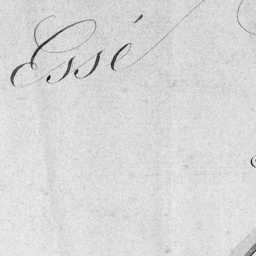 Essé